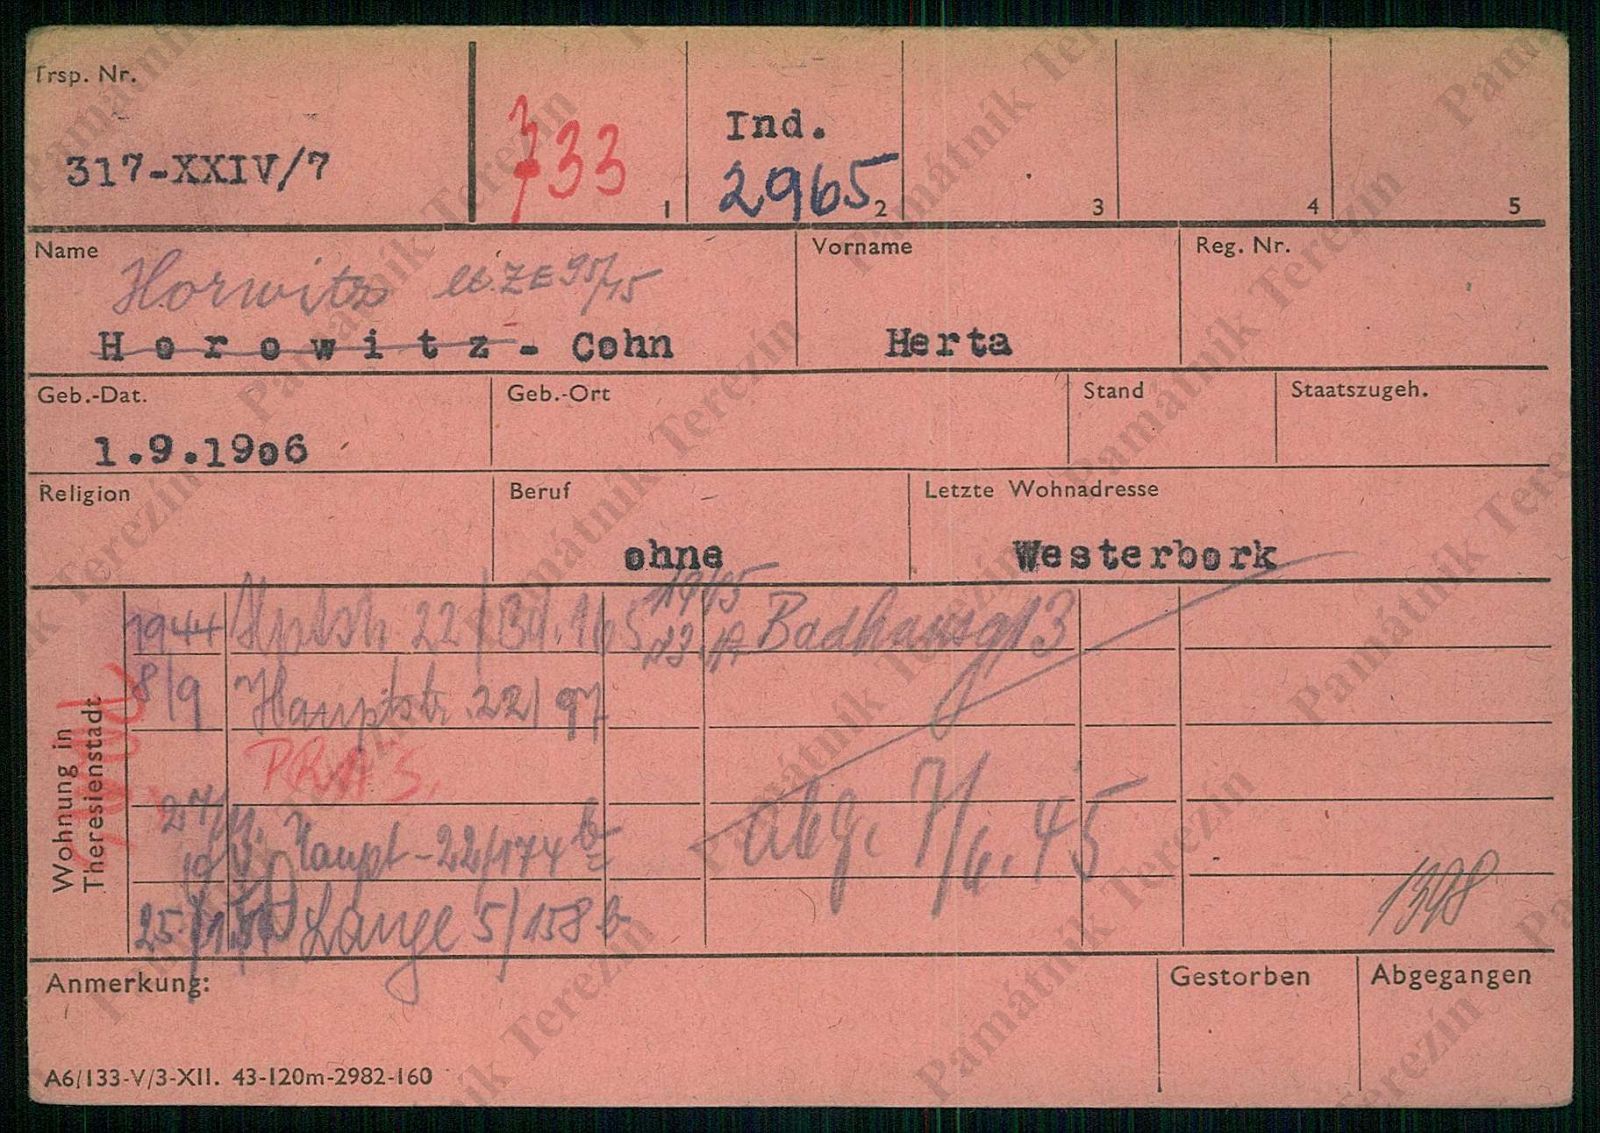 Trsp. Nr.
317-XXIV/7
733
1
Ind.
2965
2
3
4
5
Name
Horwitz lt. ZE 95/45
Horowitz - Cohn
Vorname
Herta
Reg. Nr.
Geb.-Dat.
1.9.1906
Geb.-Ort
Stand
Staatszugeh.
Religion
Beruf
ohne
Letzte Wohnadresse
Westerbork
Wohnung in
Theresienstadt
1944 22/ 1945 Badhausg 13
8/9 Hauptstr. 22/97
27/ Haupt-22/174 b
abg. 7/6.45
25. Lange 5/158 b
1398
Anmerkung:
Gestorben
Abgegangen
A6/133-V/3-XII. 43-120m-2982-160
Památník Terezín